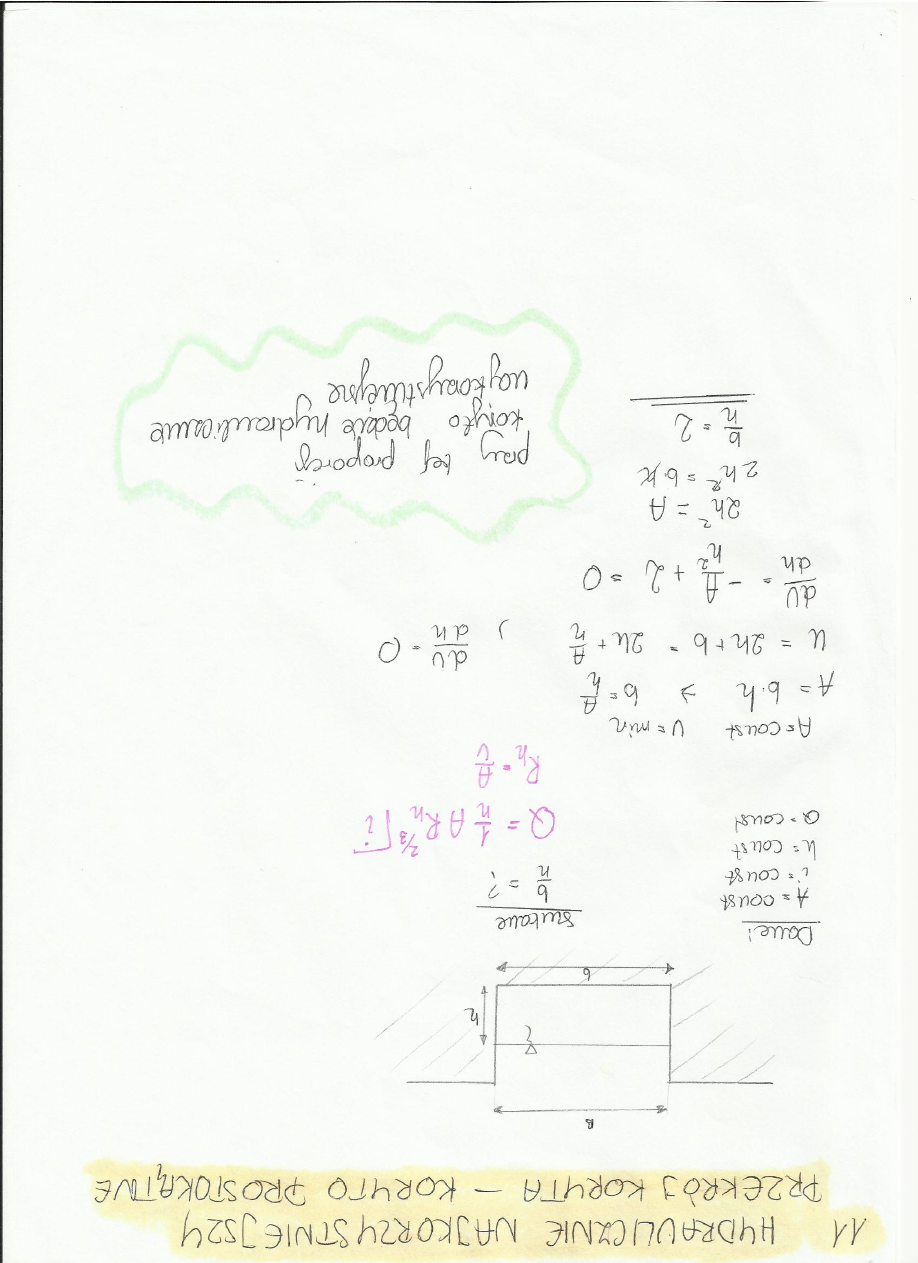 11 HYDRAULICZNIE NAJKORZYSTNIEJSZY
PRZEKRÓJ KORYTA – KORYTO PROSTOKĄTNE
B
h
b
Dane:
A = const
i = const
n = const
Q = const
Szukane
b/h = ?
Q = 1/n A Rh^2/3 √i
Rh = A/U
A = const U = min
A = b·h → b = A/h
U = 2h + b = 2h + A/h , dU/dh = 0
dU/dh = - A/h² + 2 = 0
2h² = A
2h² = b·h
b/h = 2
przy tej proporcji
koryto będzie hydraulicznie
najkorzystniejsze